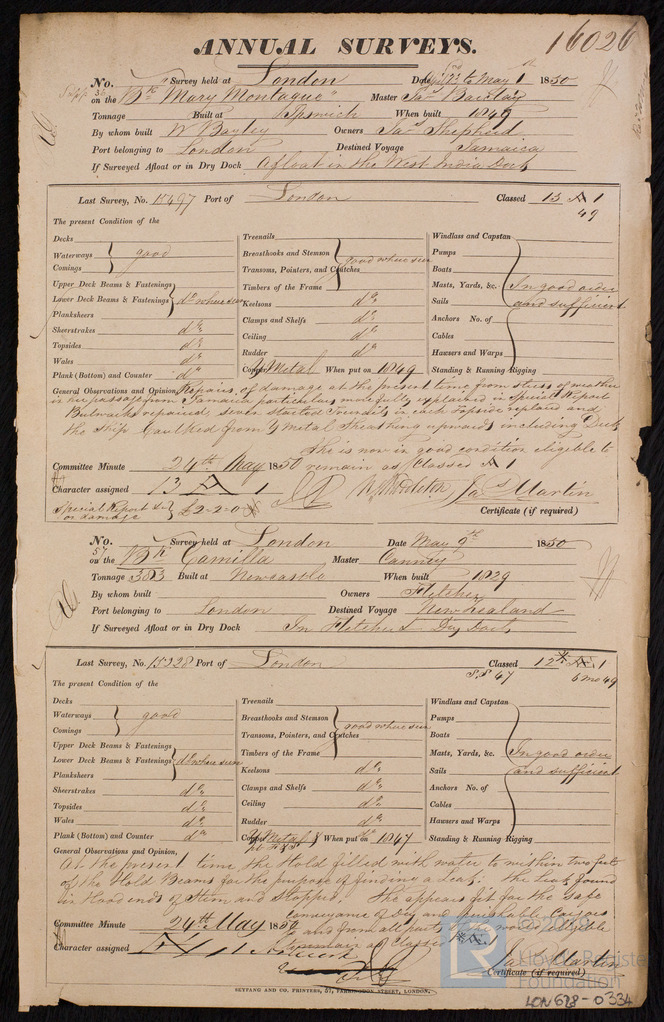 ANNUAL SURVEYS.
16026
No. Survey held at London Date May 1st 1850
on the Bk "Mary Montague" Master Jas Barclay
Tonnage Built at Ipswich When built 1849
By whom built W Bayley Owners Jas Shepherd
Port belonging to London Destined Voyage Jamaica
If Surveyed Afloat or in Dry Dock Afloat in the West India Dock
Last Survey, No. 15497 Port of London Classed 13 A 1
49
The present Condition of the
Decks
Waterways good
Comings
Upper Deck Beams & Fastenings
Lower Deck Beams & Fastenings do where seen
Planksheers
Sheerstrakes do
Topsides do
Wales do
Plank (Bottom) and Counter do
Treenails
Breasthooks and Stemson good where seen
Transoms, Pointers, and Crutches
Timbers of the Frame
Keelsons do
Clamps and Shelfs do
Ceiling do
Rudder do
Copper Y Metal When put on 1849
Windlass and Capstan
Pumps
Boats
Masts, Yards, &c. In good order
Sails and sufficient
Anchors No. of
Cables
Hawsers and Warps
Standing & Running Rigging
General Observations and Opinion, Repairs of damage at the present time from stress of weather
on her passage from Jamaica particulars more fully explained in Special Report
Bulwarks repaired, seven started Treenails in each Topside replaced and
the Ship Caulked from Y Metal Sheathing upwards including Deck
She is now in good condition eligible to
Committee Minute 24th May 1850 remain as Classed A 1
Character assigned 13 A 1
Jas Martin
Special Report
on damage £2-2-0
Certificate (if required)
No. Survey held at London Date May 9th 1850
57 on the Bk Camilla Master Canney
Tonnage 383 Built at Newcastle When built 1829
By whom built Owners Fletcher
Port belonging to London Destined Voyage New Zealand
If Surveyed Afloat or in Dry Dock In Fletcher's Dry Dock
Last Survey, No. 15328 Port of London Classed 12 * Æ 1
S.S 47 6 mo 49
The present Condition of the
Decks
Waterways good
Comings
Upper Deck Beams & Fastenings
Lower Deck Beams & Fastenings do where seen
Planksheers
Sheerstrakes do
Topsides do
Wales do
Plank (Bottom) and Counter do
Treenails
Breasthooks and Stemson good where seen
Transoms, Pointers, and Crutches
Timbers of the Frame
Keelsons do
Clamps and Shelfs do
Ceiling do
Rudder do
Copper Y Metal When put on 1847
Windlass and Capstan
Pumps
Boats
Masts, Yards, &c. In good order
Sails and sufficient
Anchors No. of
Cables
Hawsers and Warps
Standing & Running Rigging
General Observations and Opinion,
At the present time the Hold filled with water to within two feet
of the Hold Beams for the purpose of finding a Leak; the leak found
in Hood ends of Stem and Stopped. She appears fit for the safe
conveyance of Dry and perishable Cargoes
Committee Minute 24th May 1850 and from all parts of the world eligible
Character assigned to remain as classed
Jas Martin
Certificate (if required)
SEYFANG AND CO. PRINTERS, 57, FARRINGDON STREET, LONDON.
LON 678-0334
Lloyd's Register
Foundation